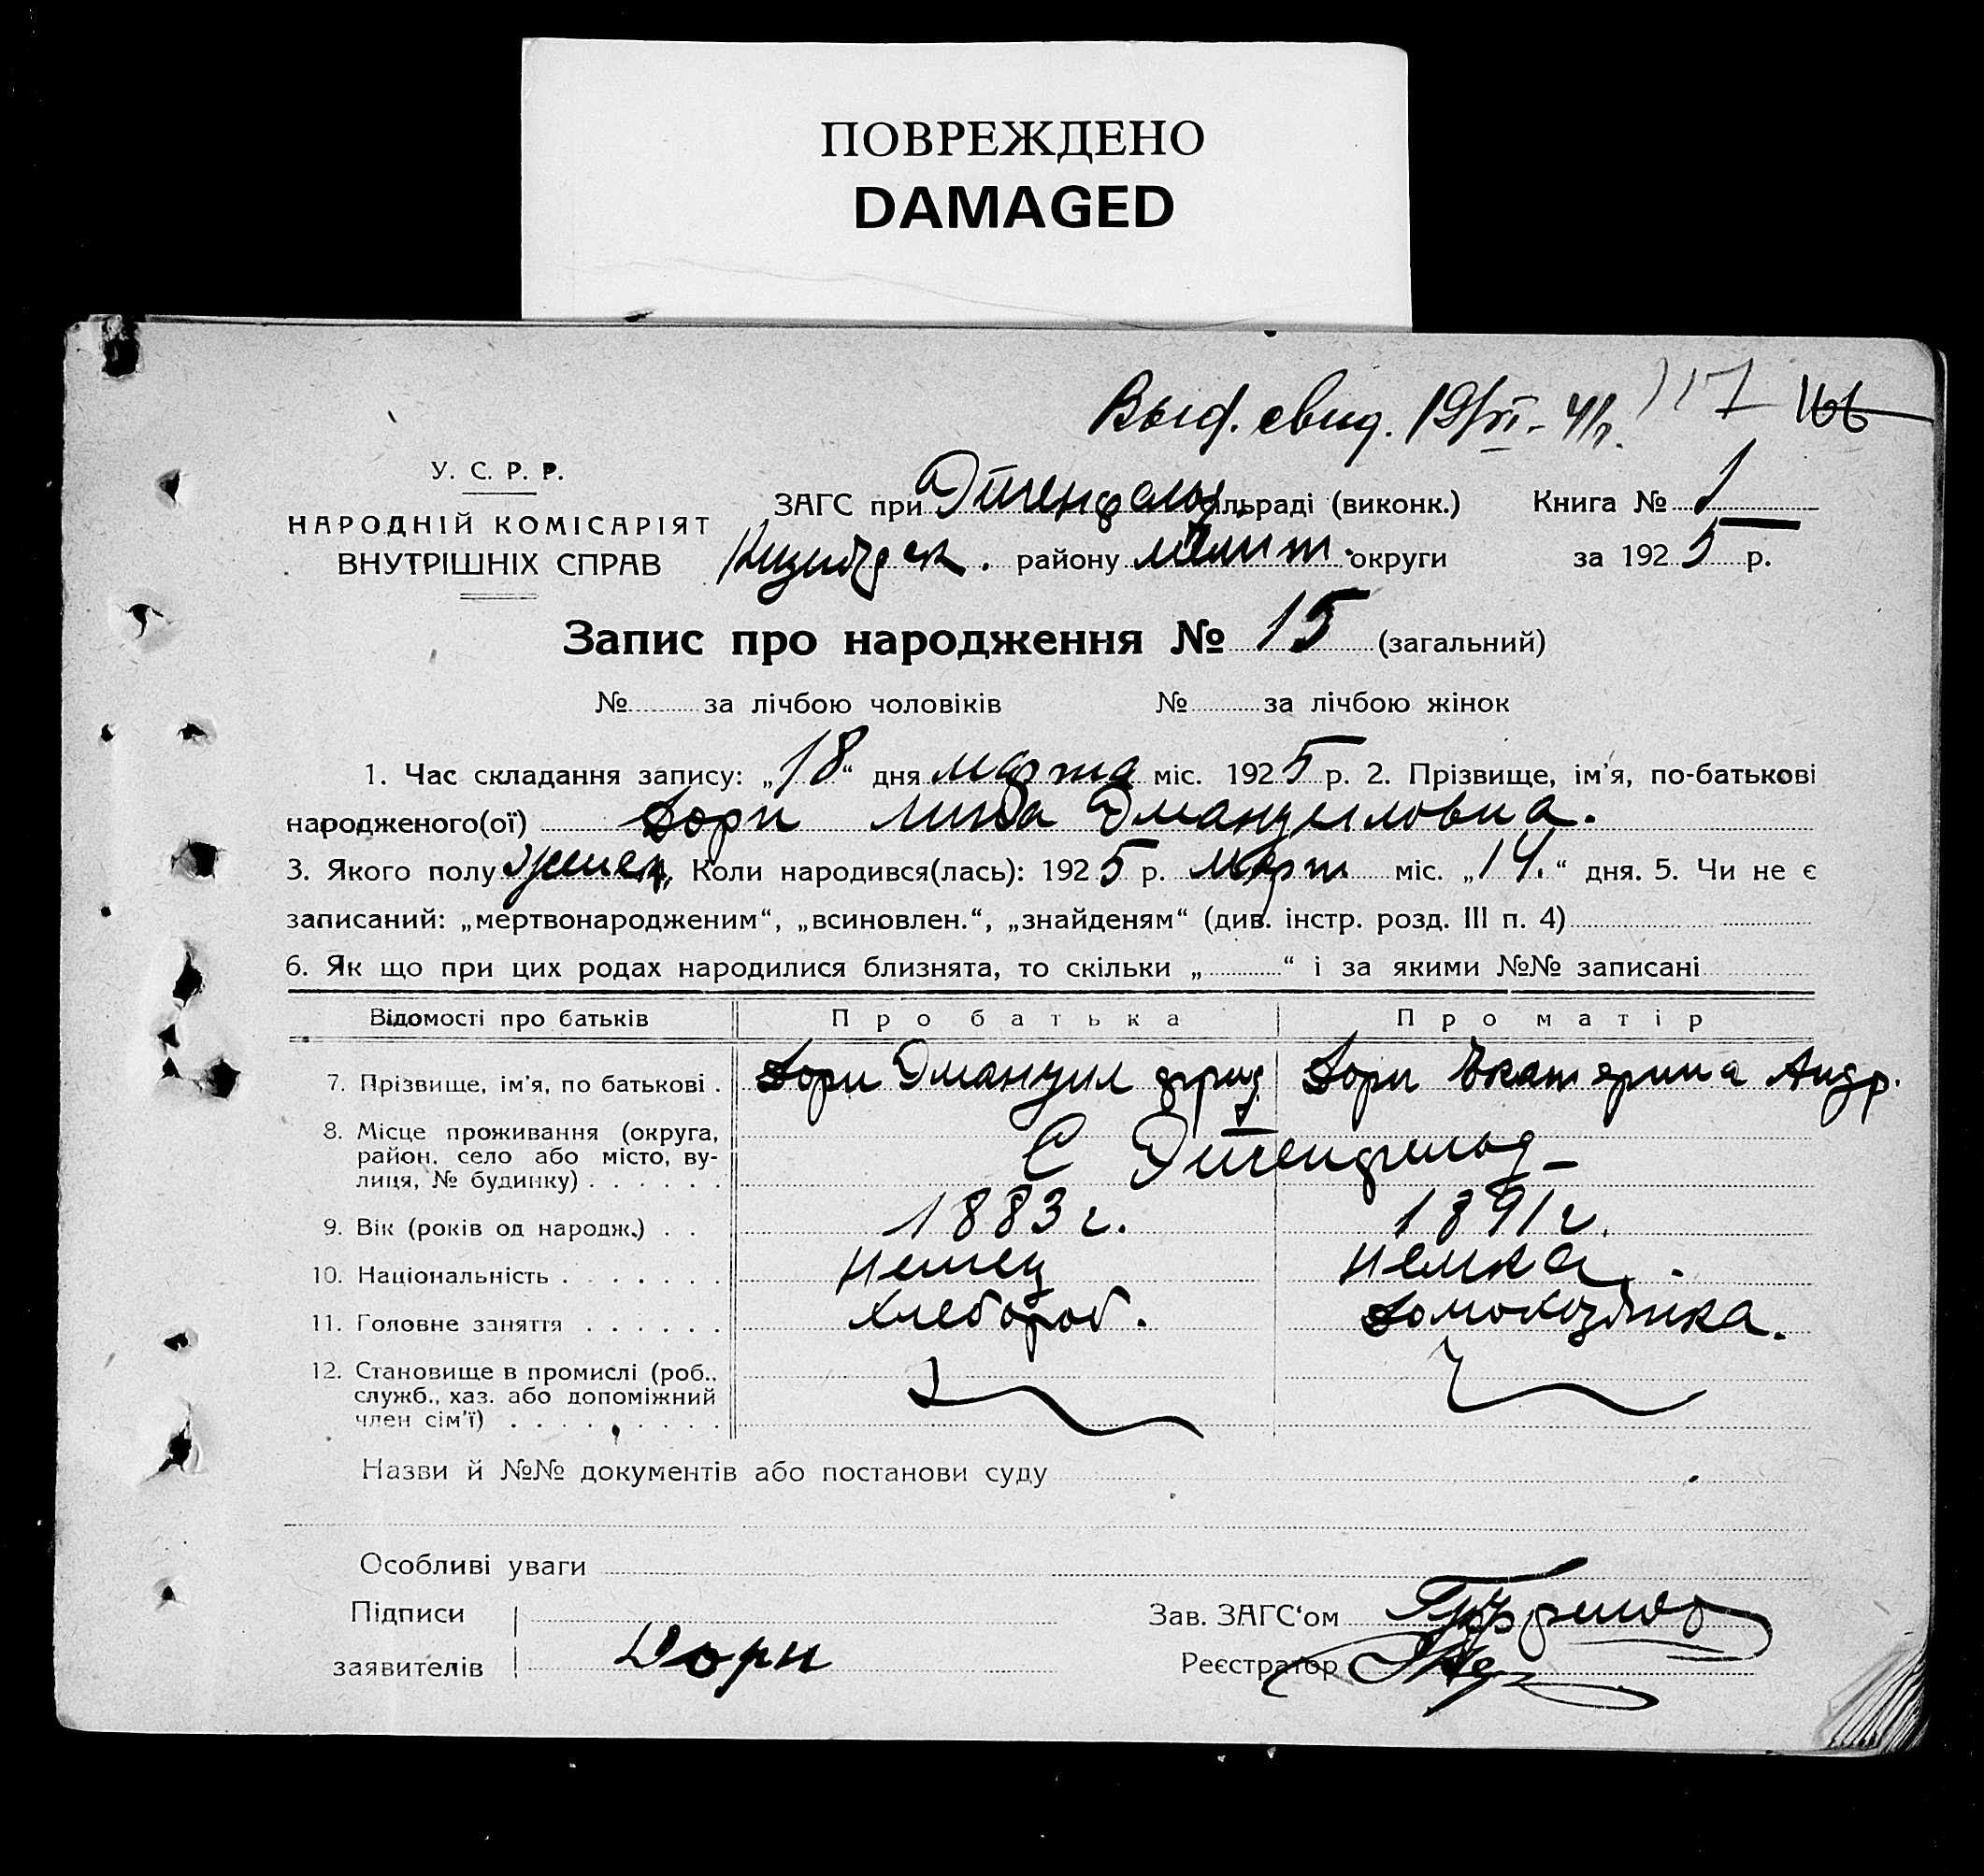 ПОВРЕЖДЕНО
DAMAGED
Выд. свид. 19/VI - 41г. 117 166
У. С. Р. Р.
НАРОДНІЙ КОМІСАРІЯТ
ВНУТРІШНІХ СПРАВ
ЗАГС при Эйгенфельд ільраді (виконк.) Книга № 1
району Меліт. округи за 1925 р.
Запис про народження № 15 (загальний)
№ за лічбою чоловіків № за лічбою жінок
1. Час складання запису: „18“ дня марта міс. 1925 р. 2. Прізвище, ім'я, по-батькові
народженого(ої) Дорн Лида Эмануиловна.
3. Якого полу женск. Коли народився(лась): 1925 р. март міс. „14.“ дня. 5. Чи не є
записаний: „мертвонародженим“, „всиновлен.“, „знайденям“ (див. інстр. розд. III п. 4)
6. Як що при цих родах народилися близнята, то скільки „ “ і за якими №№ записані
Відомості про батьків Про батька Про матір
7. Прізвище, ім'я, по батькові . Дорн Эмануил Фрид. Дорн Екатерина Андр.
8. Місце проживання (округа,
район, село або місто, ву-
лиця, № будинку) . . . . . . С Эйгенфельд
9. Вік (років од народж.) . . 1883 г. 1891 г.
10. Національність . . . . . . . Немец Немка.
11. Головне заняття . . . . . . Хлебороб. Домохозяйка.
12. Становище в промислі (роб.,
служб., хаз. або допоміжний
член сім'ї) . . . . . . . . .
Назви й №№ документів або постанови суду
Особливі уваги
Підписи
заявителів Дорн
Зав. ЗАГС'ом
Реєстратор